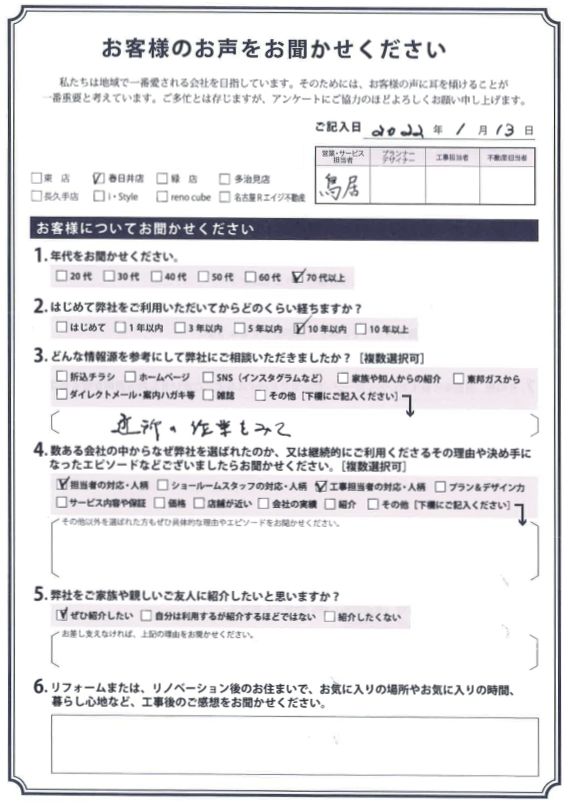 お客様のお声をお聞かせください
私たちは地域で一番愛される会社を目指しています。そのためには、お客様の声に耳を傾けることが
一番重要と考えています。ご多忙とは存じますが、アンケートにご協力のほどよろしくお願い申し上げます。
ご記入日 2022 年 1 月 13 日
営業・サービス担当者 プランナーデザイナー 工事担当者 不動産担当者
鳥居
□東 店 ☑春日井店 □緑 店 □多治見店
□長久手店 □i・Style □reno cube □名古屋Rエイジ不動産
お客様についてお聞かせください
1. 年代をお聞かせください。
□20代 □30代 □40代 □50代 □60代 ☑70代以上
2. はじめて弊社をご利用いただいてからどのくらい経ちますか?
□はじめて □1年以内 □3年以内 □5年以内 ☑10年以内 □10年以上
3. どんな情報源を参考にして弊社にご相談いただきましたか?［複数選択可］
□折込チラシ □ホームページ □SNS（インスタグラムなど） □家族や知人からの紹介 □東邦ガスから
□ダイレクトメール・案内ハガキ等 □雑誌 □その他［下欄にご記入ください］
近所の作業をみて
4. 数ある会社の中からなぜ弊社を選ばれたのか、又は継続的にご利用くださるその理由や決め手に
なったエピソードなどございましたらお聞かせください。［複数選択可］
☑担当者の対応・人柄 □ショールームスタッフの対応・人柄 ☑工事担当者の対応・人柄 □プラン&デザイン力
□サービス内容や保証 □価格 □店舗が近い □会社の実績 □紹介 □その他［下欄にご記入ください］
その他以外を選ばれた方もぜひ具体的な理由やエピソードをお聞かせください。
5. 弊社をご家族や親しいご友人に紹介したいと思いますか?
☑ぜひ紹介したい □自分は利用するが紹介するほどではない □紹介したくない
お差し支えなければ、上記の理由をお聞かせください。
6. リフォームまたは、リノベーション後のお住まいで、お気に入りの場所やお気に入りの時間、
暮らし心地など、工事後のご感想をお聞かせください。